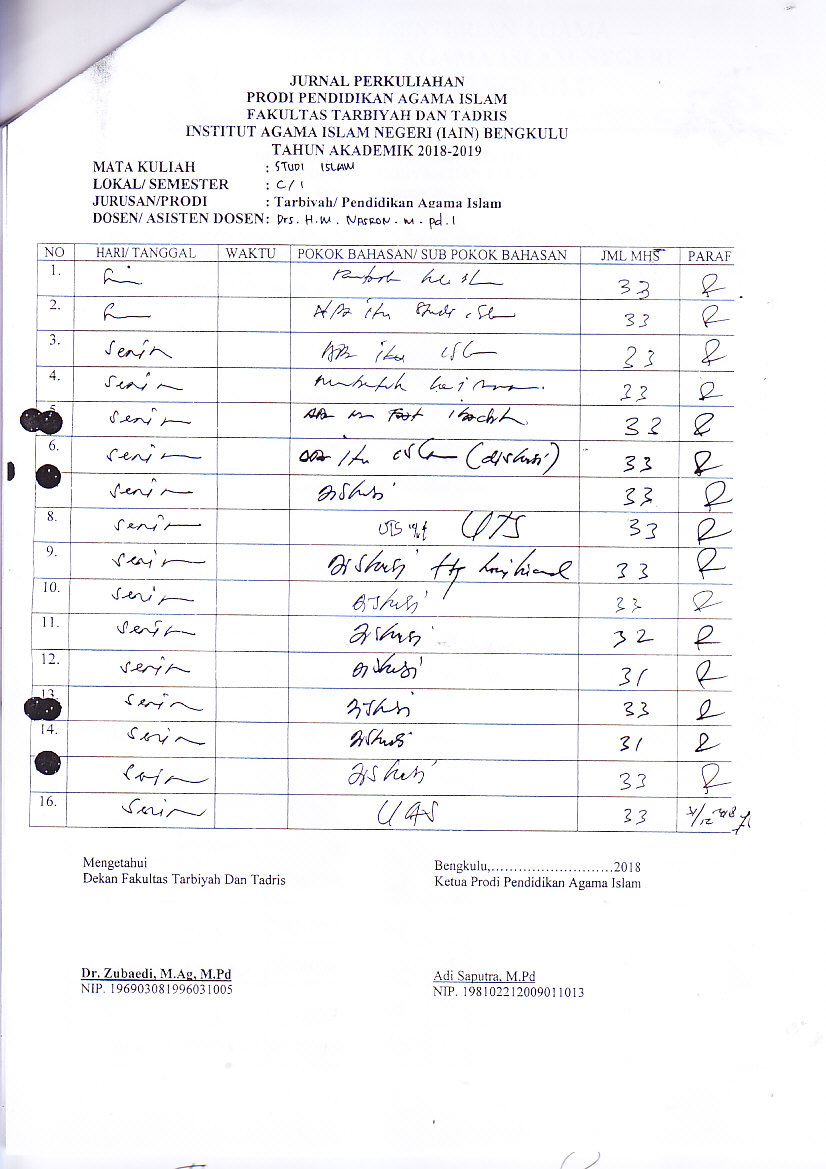 JURNAL PERKULIAHAN
PRODI PENDIDIKAN AGAMA ISLAM
FAKULTAS TARBIYAH DAN TADRIS
INSTITUT AGAMA ISLAM NEGERI (IAIN) BENGKULU
TAHUN AKADEMIK 2018-2019
MATA KULIAH : STUDI ISLAM
LOKAL/ SEMESTER : C/1
JURUSAN/PRODI : Tarbiyah/ Pendidikan Agama Islam
DOSEN/ ASISTEN DOSEN: Drs. H.M. NASRON. M. Pd.I
NO HARI/ TANGGAL WAKTU POKOK BAHASAN/ SUB POKOK BAHASAN JML MHS PARAF
1. 33
2. Apa itu Studi Islam 33
3. Senin Apa itu Islam 23
4. Senin 33
5. Senin 33
6. Senin Apa itu Islam (diskusi) 33
Senin diskusi 33
8. Senin UTS 33
9. Senin diskusi ttg 33
10. Senin diskusi 33
11. Senin diskusi 32
12. Senin diskusi 31
13. Senin diskusi 33
14. Senin diskusi 31
Senin diskusi 33
16. Senin UAS 33
Mengetahui Bengkulu,...........................2018
Dekan Fakultas Tarbiyah Dan Tadris Ketua Prodi Pendidikan Agama Islam
Dr. Zubaedi, M.Ag, M.Pd Adi Saputra, M.Pd
NIP. 196903081996031005 NIP. 198102212009011013